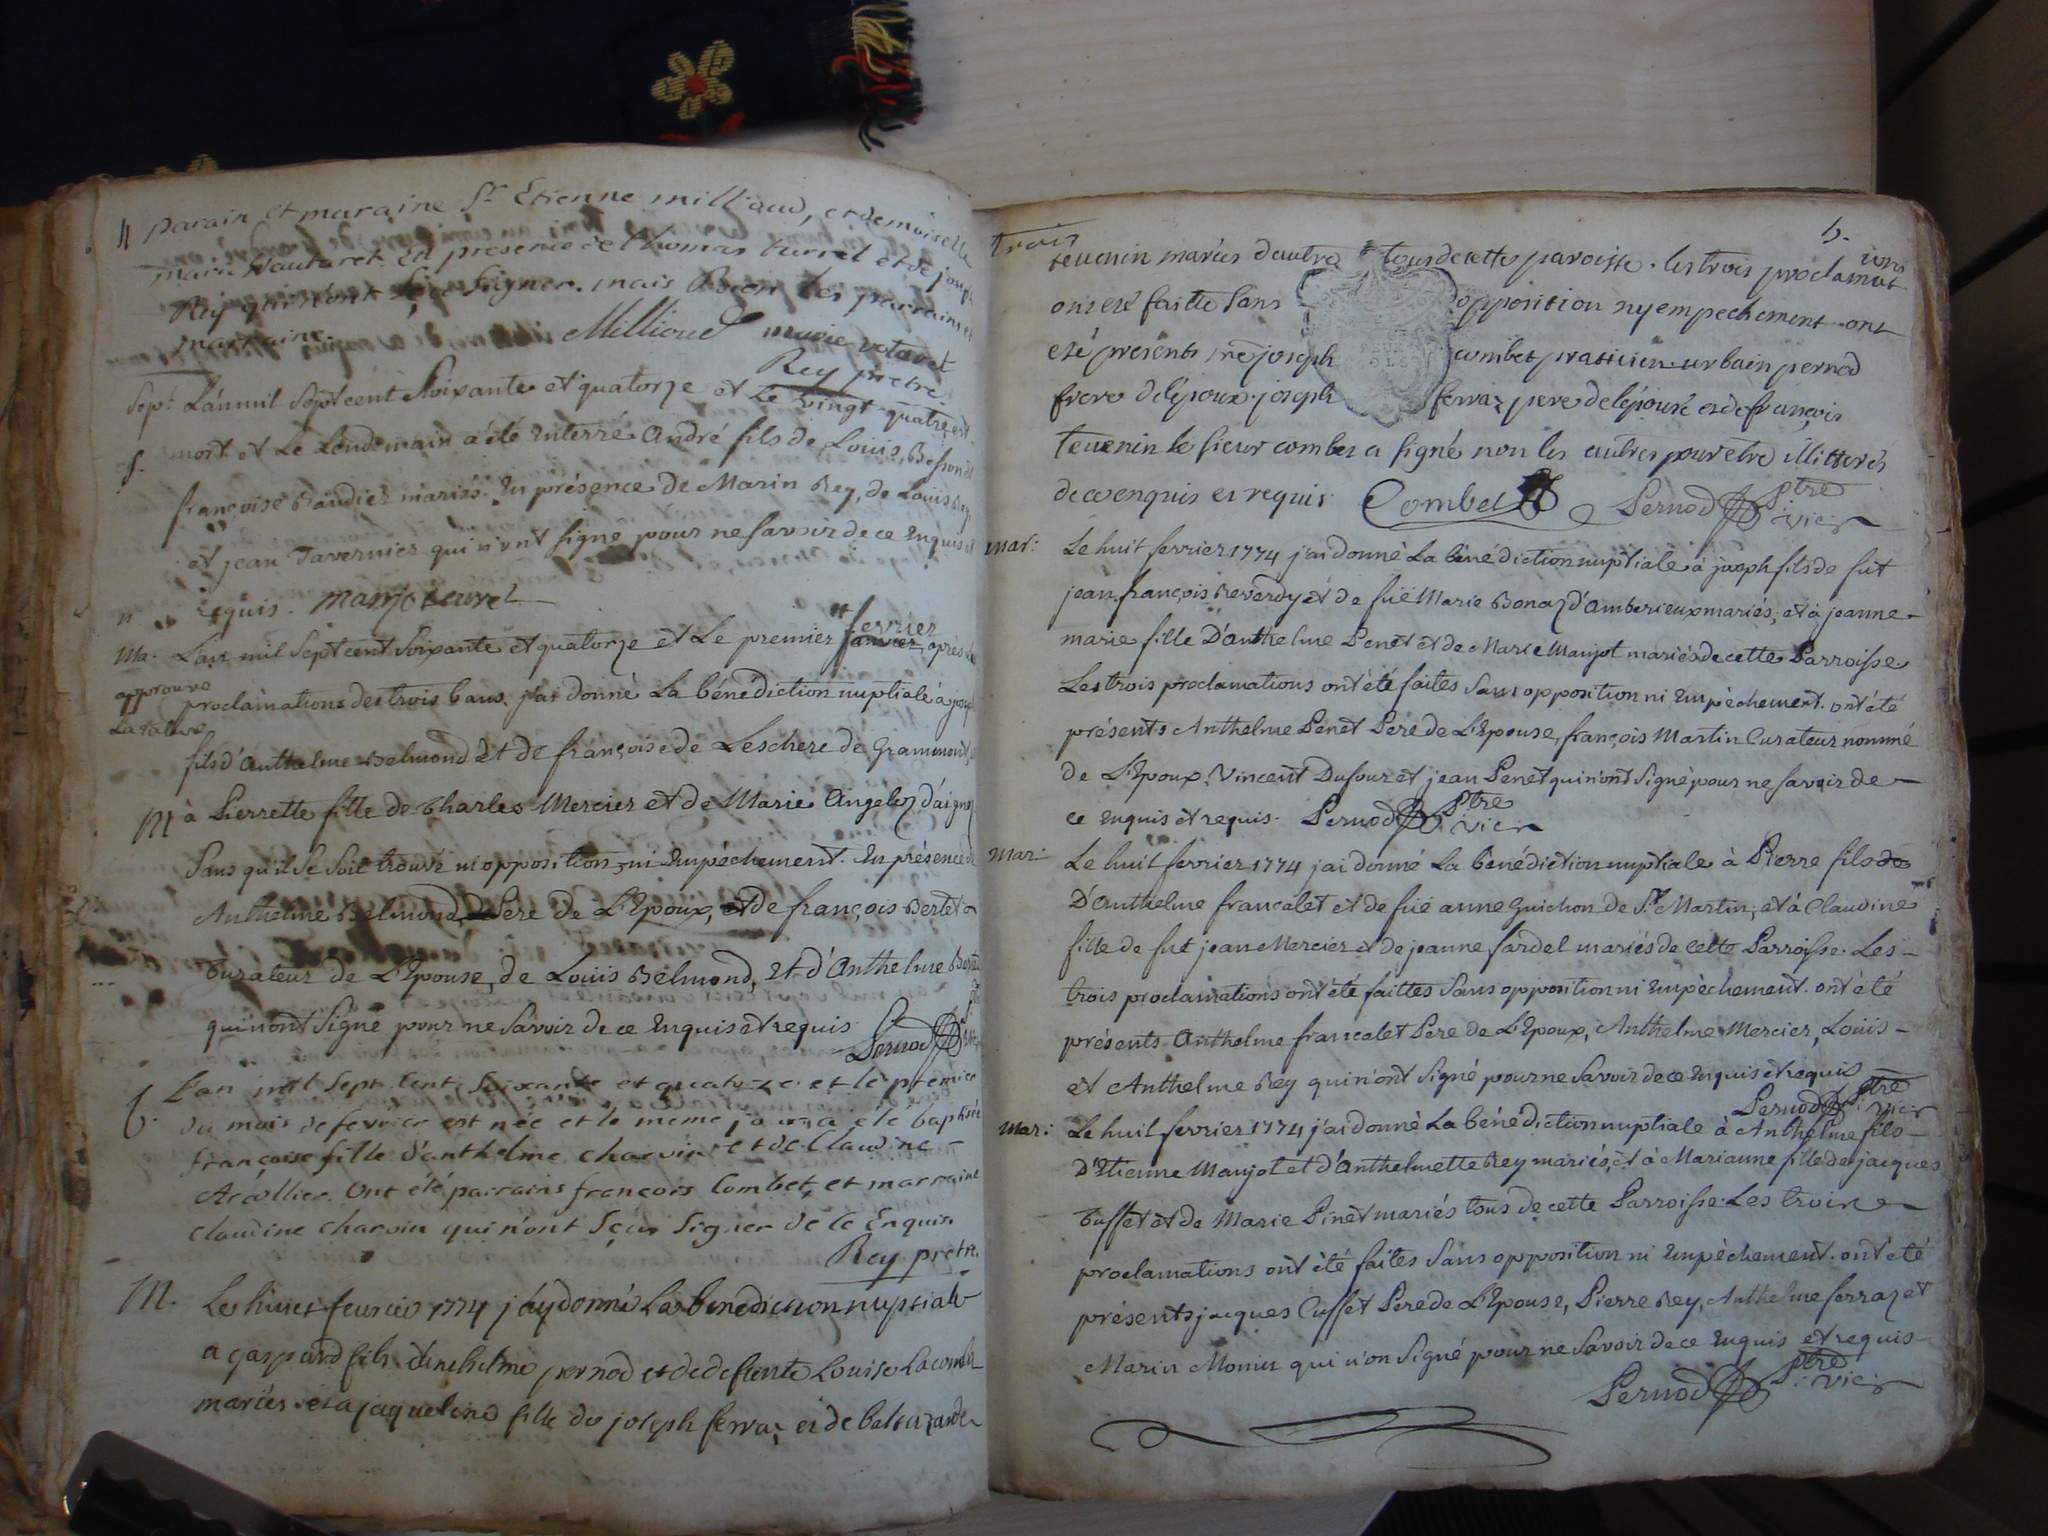 4 parain et maraine Sr Etienne millioud, et demoiselle
marie Vautaret. En presence de thomas turrel et de joseph
Rey qui n'ont sçu signer. mais Bien les parrain et
marraine. Millioud marie votaret
Rey pretre
Sept. L'an mil Sept cent Soixante et quatorze et Le vingt quatre est
S. mort et Le Lendemain a été enterré André fils de Louis Besson et
françoise Baudier mariés. En présence de Marin Rey, de Louis Rey,
et jean Tavernier qui n'ont signé pour ne savoir de ce enquis et
requis.
fevrier
Ma. L'an mil Sept cent Soixante et quatorze et Le premier janvier, après les
approuve La rature
proclamations des trois bans, j'ai donné La bénédiction nuptiale à joseph
fils d'Anthelme Belmond et de françoise de Leschere de Gramment, et
M à Pierrette fille de Charles Mercier et de Marie Angeloz d'aignoz
Sans qu'il se soit trouvé ni opposition, ni Empêchement. En présence de
Anthelme Belmond, Pere de L'Epoux, et de françois Bertet
Curateur de L'Epouse, de Louis Belmond, et d'Anthelme
qui n'ont Signé pour ne Savoir de ce Enquis et requis
Pernod
b. L'an mil Sept Cent Soixante et quatorze et le premier
du mois de février est née et le meme jour a été baptisée
françoise fille d'anthelme charvin et de Claudine
Ont été parrains françois Combet, et marraine
claudine charvin qui n'ont Sçus Signer de ce Enquis
Rey pretre
M. Le huict feuvrier 1774 j'ay donné La benediction nuptiale
a gaspard fils d'anthelme pernod et de deffunte Louise Lacombe
mariés et a jaqueline fille de joseph ferraz et de baltazarde
5.
trois
teuenin mariés d'autre tous de cette paroisse. les trois proclamations
ont été faitte sans opposition ny empechement ont
eté presents me joseph combet praticien urbain pernod
frere de l'époux joseph ferraz pere de lépouse et de françois
teuenin le sieur combet a signé non les autres pour etre illitterés
de ce enquis et requis. Combet Pernod Ptre vic:
Mar: Le huit fevrier 1774 j'ai donné La bénédiction nuptiale à joseph fils de fut
jean françois Reverdy et de fuë Marie Bonaz d'Amberieux mariés, et à jeanne
marie fille D'anthelme Penet et de Marie Maujot mariés de cette Parroisse
Les trois proclamations ont été faites Sans opposition ni Empêchement. ont été
présents Anthelme Penet Pere de L'Epouse, françois Martin Curateur nommé
de L'Epoux, Vincent Dufour et jean Penet qui n'ont Signé pour ne savoir de
ce Enquis et requis. Pernod Ptre vic:
Mar: Le huit fevrier 1774 j'ai donné La bénédiction nuptiale à Pierre fils de
D'Anthelme francalet et de fuë anne Guichon de St Martin, et à Claudine
fille de fut jean Mercier et de jeanne fardel mariés de cette Parroisse. Les
trois proclamations ont été faittes Sans opposition ni Empêchement. ont été
présents Anthelme francalet Pere de L'Epoux, Anthelme Mercier, Louis
et Anthelme Rey qui n'ont Signé pour ne Savoir de ce Enquis et requis
Pernod Ptre vic:
Mar: Le huit fevrier 1774 j'ai donné La bénédiction nuptiale à Anthelme fils
D'Etienne Maujot et d'Anthelmette Rey mariés, et à Marianne fille de jacques
Cuffet et de Marie Pinet mariés tous de cette Parroisse. Les trois
proclamations ont été faites Sans opposition ni Empêchement. ont été
présents jacques Cuffet Pere de L'Epouse, Pierre Rey, Anthelme ferraz et
Marin Monin qui n'on Signé pour ne Savoir de ce Enquis et requis
Pernod Ptre vic: